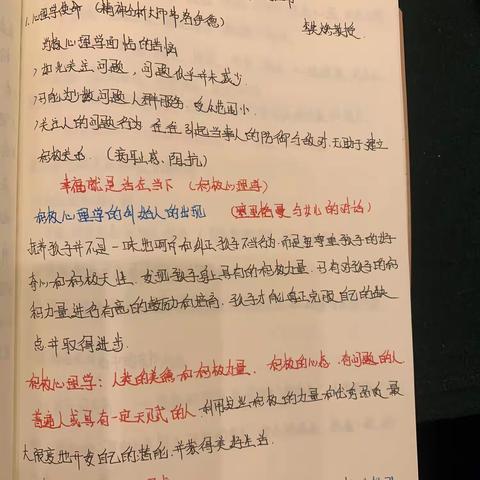 1.心理学使命（精神分析大师弗洛伊德）
当心理学面临的普偏
> 如光关注问题，问题似乎并未减少
> 只能为少数问题人群服务，受众范围小
> 关注人的问题行为 往往引起当事人的防御与敌对，无助于建立
积极关系。（病耻感、阻抗）
幸福就是活在当下（积极心理学）
积极心理学的创始人的出现（塞里格曼与女儿的对话）
培养孩子并不是一味地呵斥和纠正孩子不当行为，而是要尊重孩子的好
奇心和积极天性，发现孩子身上具有的积极力量，只有对孩子的积
极力量进行有意的鼓励和培育，孩子才能真正克服自己的缺
点并取得进步.
积极心理学：人类的美德和积极力量，积极的心态，有问题的人
普通人或具有一定天赋的人，利用这些积极的力量和优秀品质，最
大限度地开发自己的潜能，并获得美好生活.